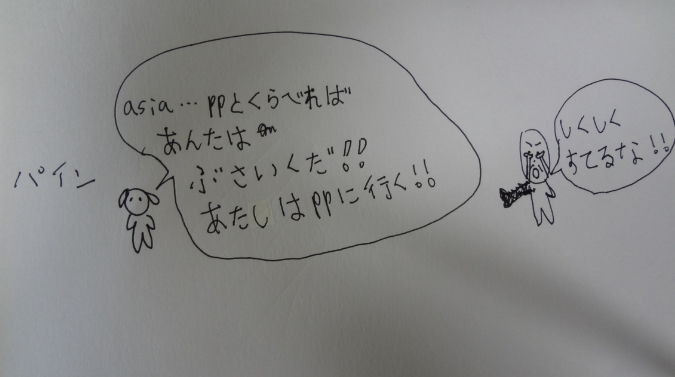 パイン
asia…ppとくらべれば
あんたは
ぶさいくだ!!
あたしはppに行く!!
しくしく
すてるな!!